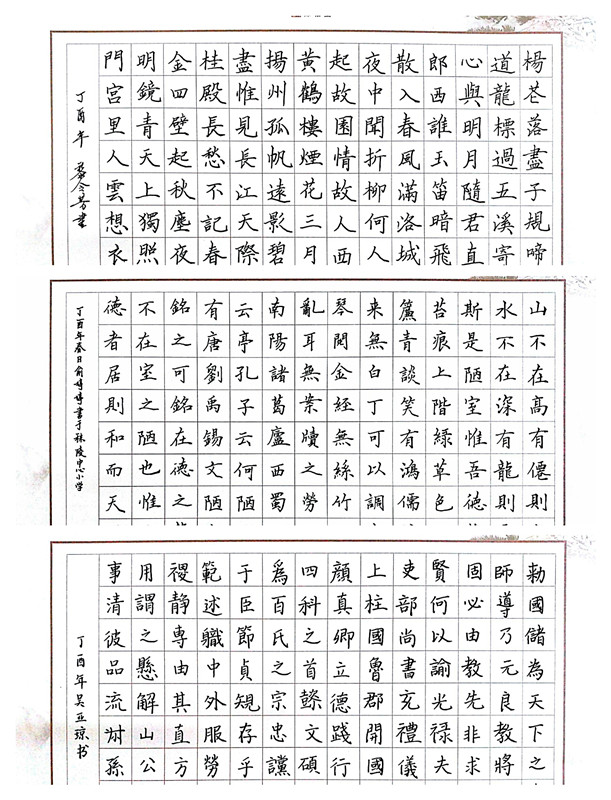 楊花落盡子規啼
道龍標過五溪寄
心與明月隨君直
郎西誰玉笛暗飛
散入春風滿洛城
夜中聞折柳何人
起故園情故人西
黃鶴樓煙花三月
揚州孤帆遠影碧
盡惟見長江天際
桂殿長愁不記春
金四壁起秋塵夜
明鏡青天上獨照
門宮里人雲想衣
丁酉年 書
山不在高有僊則
水不在深有龍則
斯是陋室惟吾德
苔痕上階緑草色
簾青談笑有鴻儒
来無白丁可以調
琴閱金經無絲竹
亂耳無案牘之勞
南陽諸葛廬西蜀
云亭孔子云何陋
有唐劉禹錫文陋
銘之可銘在德之
不在室之陋也惟
德者居則和而天
丁酉年春日俞婷婷書于秣陵中心小学
勅國儲為天下之
師導乃元良教將
固必由教先非求
賢何以諭光禄夫
吏部尚書充禮儀
上柱國魯郡開國
顏真卿立德踐行
四科之首懿文碩
為百氏之宗忠讜
于臣節貞規存乎
範述職中外服勞
禝静專由其直方
用謂之懸解山公
事清彼品流孫
丁酉年吴亚琼书